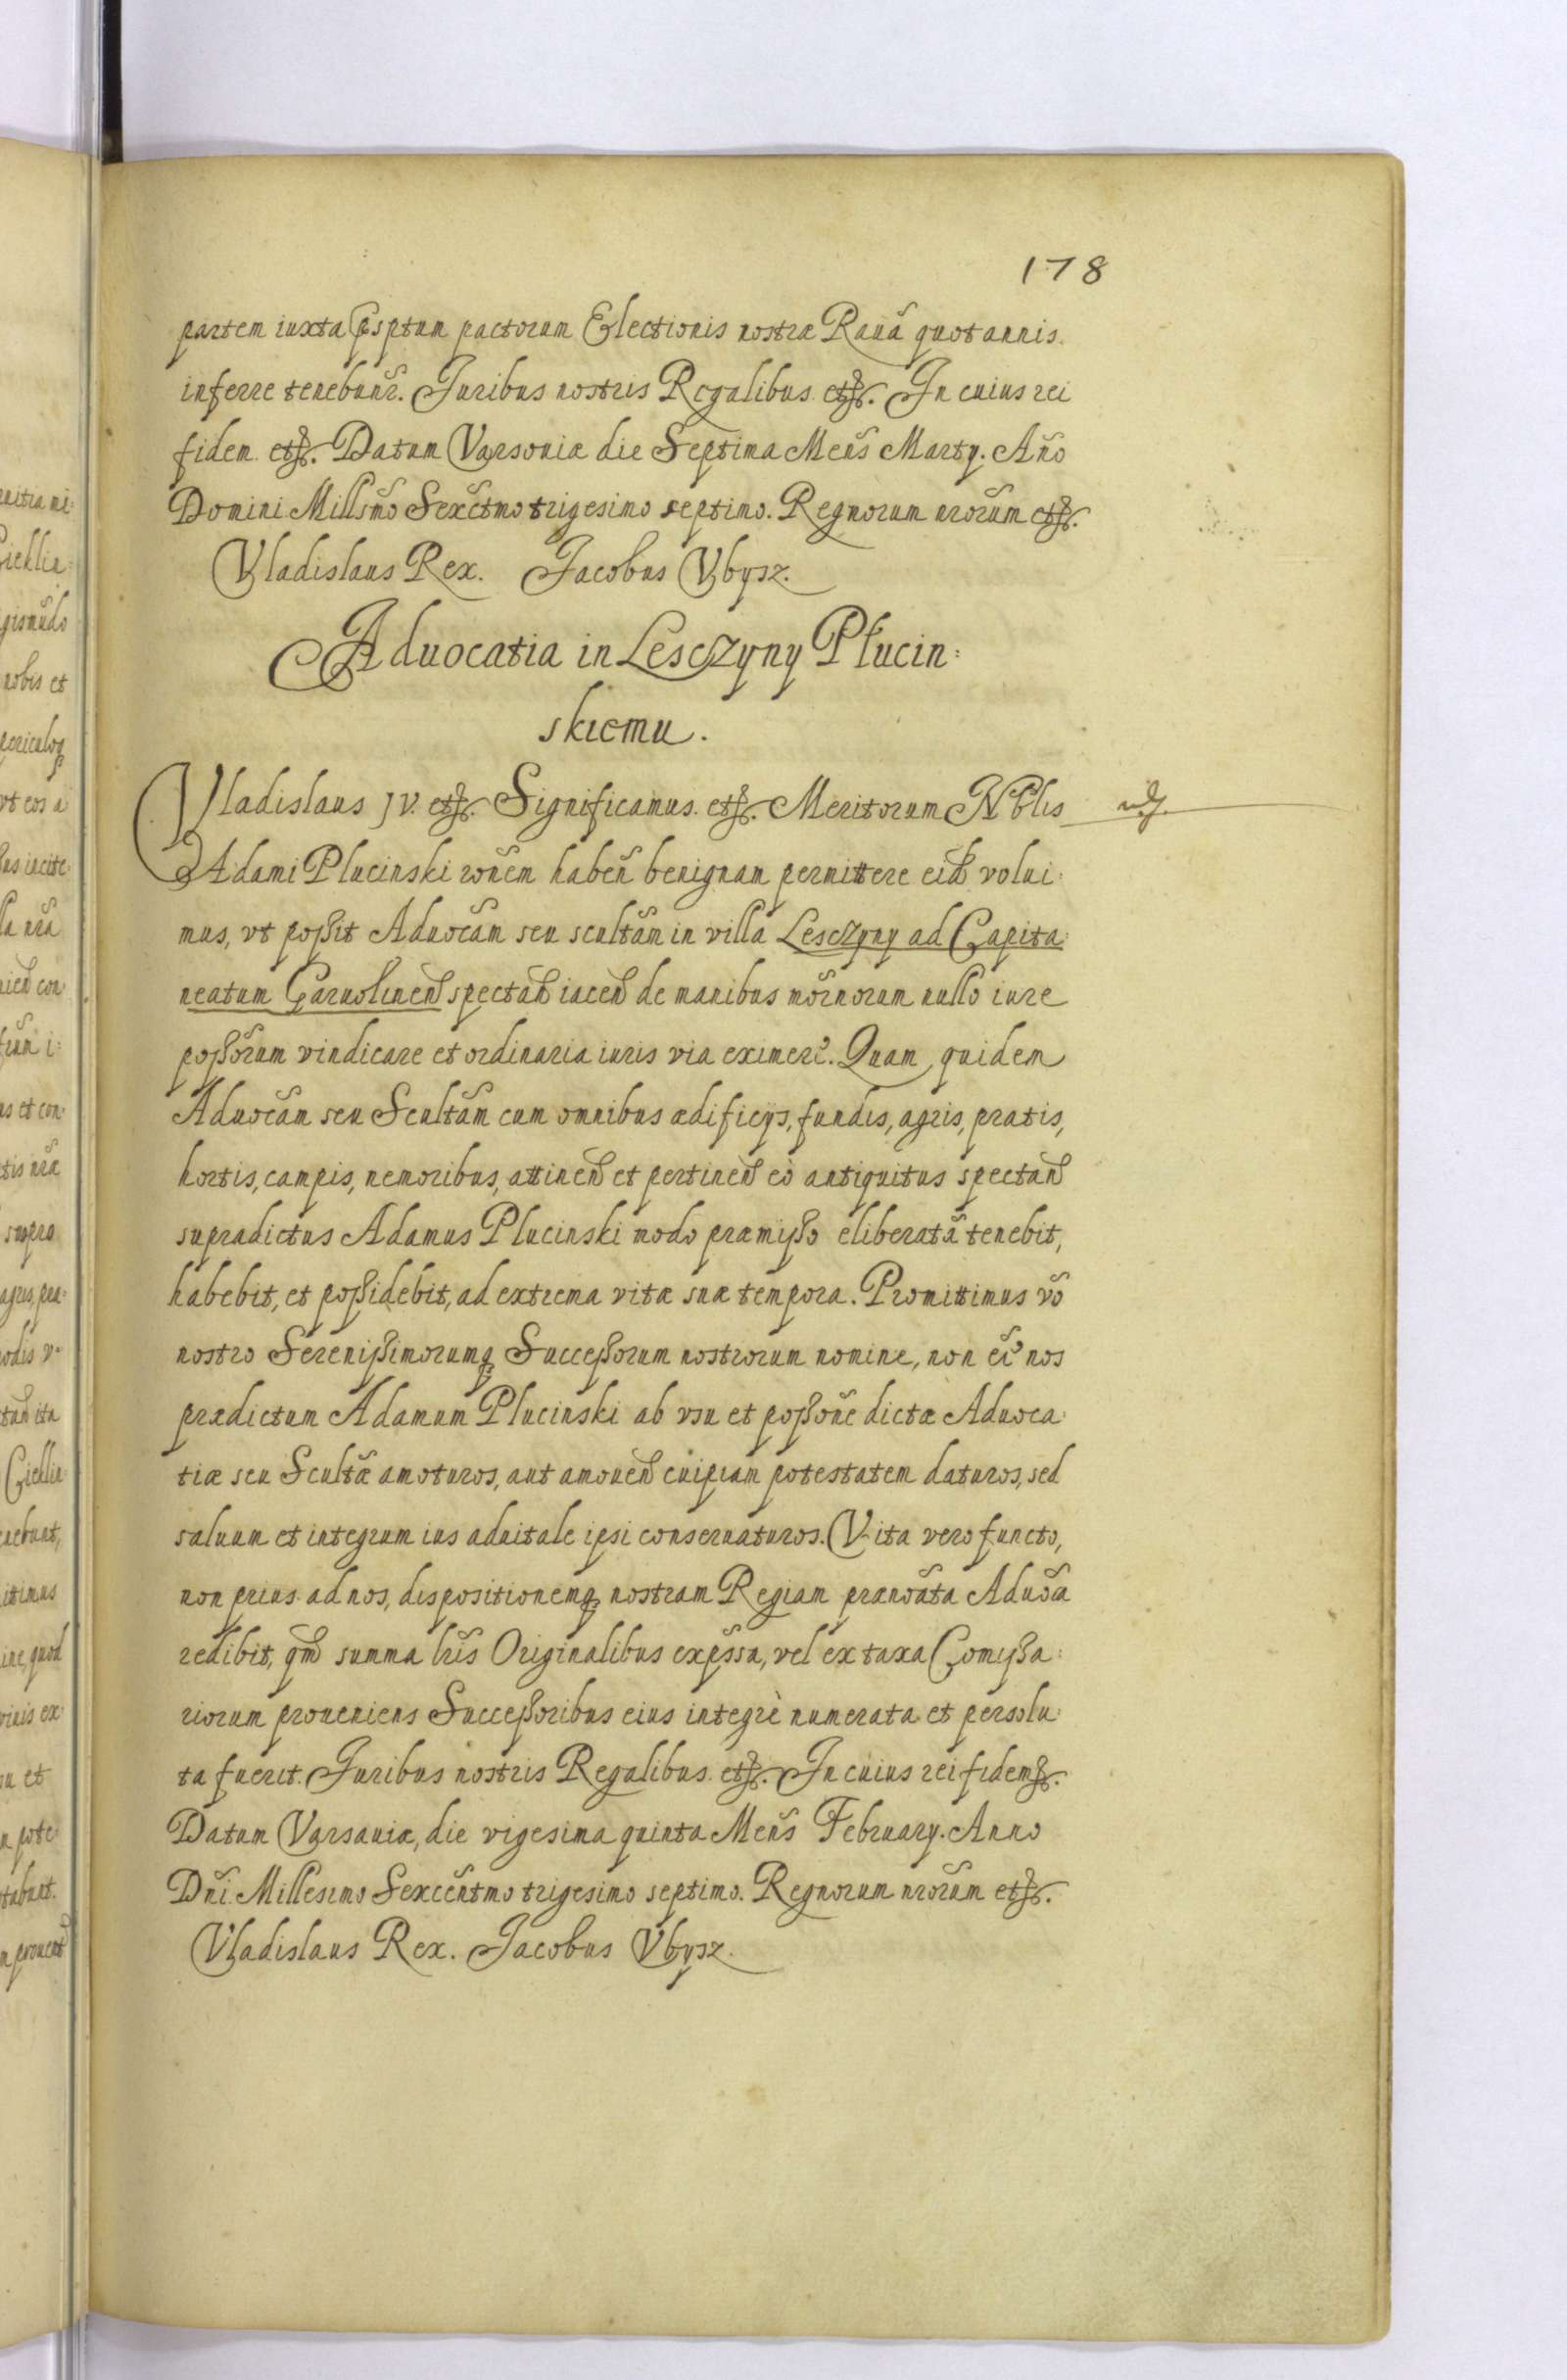 178
partem iuxta pśptum pactorum Electionis nostræ Rauã quotannis
inferre tenebunr̃. Juribus nostris Regalibus etc. In cuius rei
fidem etc. Datum Varsoviæ die Septima Mens̃ Martÿ. Año
Domini Millsm̃o Sexc̃tmo trigesimo septimo. Regnorum nr̃orum etc.
Vladislaus Rex. Jacobus Vbysz.
Aduocatia in Lesczyny Płucin=
skiemu.
Vladislaus JV. etc. Significamus. etc. Meritorum Nblis
Adami Plucinski rõnem habeñ benignam permittere eid volui=
mus, vt poßit Aduocãm seu scultãm in villa Lesczyny ad Capita=
neatum Garuolinen spectañ iaceñ de manibus mõrnorum nullo iure
poßõrum vindicare et ordinaria iuris via eximere. Quam quidem
Aduocãm seu Scultãm cum omnibus ædificijs, fundis, agris, pratis,
hortis, campis, nemoribus, attineñ et pertineñ eò antiquitus spectañ
supradictus Adamus Plucinski modo præmißo eliberatã tenebit,
habebit, et poßidebit, ad extrema vitæ suæ tempora. Promittimus võ
nostro Serenißimorumq Succeßorum nostrorum nomine, non ẽe nos
prædictum Adamum Plucinski ab vsu et poßõne dictæ Aduoca=
tiæ seu Scultæ̃ amoturos, aut amoueñ cuipiam potestatem daturos, sed
saluum et integrum ius aduitale ipsi conseruaturos. Vita vero functo,
non prius ad nos, dispositionemq nostram Regiam prænoãta Aduõa
redibit, qm̃ summa lris̃ Originalibus exp̃ssa, vel ex taxa Comißa=
riorum proueniens Succeßoribus eius integrè numerata et persolu=
ta fuerit. Juribus nostris Regalibus etc. In cuius rei fidem etc.
Datum Varsauiæ, die vigesima quinta Mens̃ Februarÿ. Anno
Dñi Millesimo Sexcẽntmo trigesimo septimo. Regnorum nrõrum etc.
Vladislaus Rex. Jacobus Vbysz.